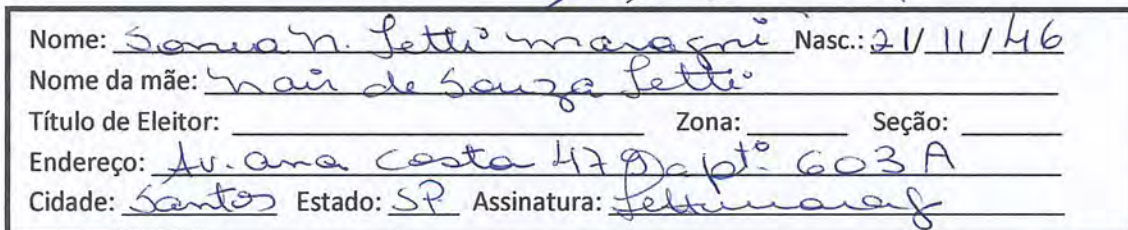 Nome: Sonia N. Letti Maragni Nasc.: 21/11/46
Nome da mãe: Nair de Souza Letti
Título de Eleitor: Zona: Seção:
Endereço: Av. Ana Costa 479 apto. 603 A
Cidade: Santos Estado: SP Assinatura: